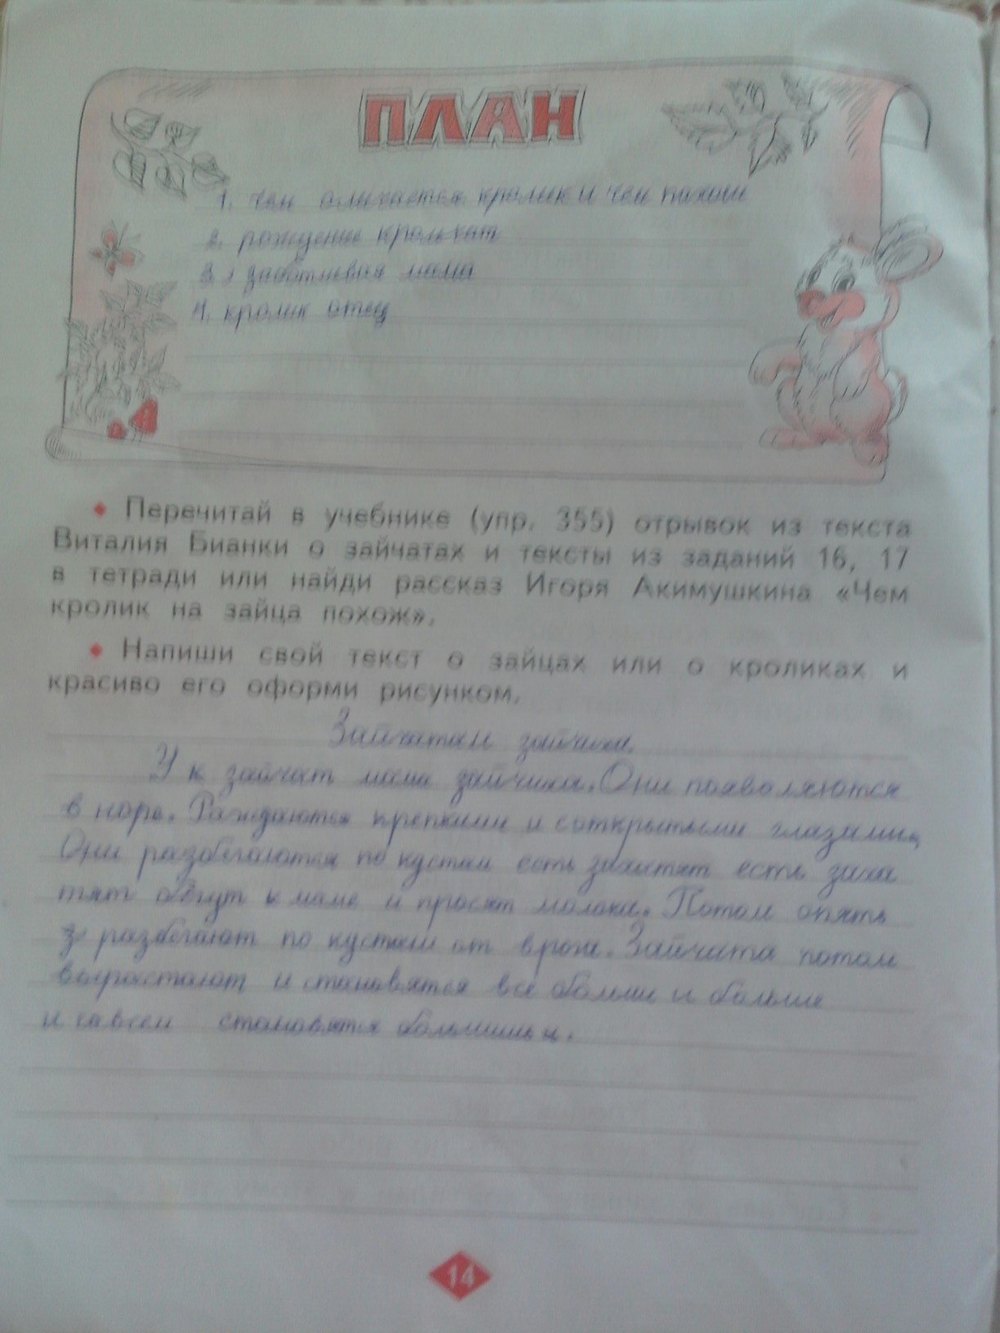 ПЛАН
1. чем отличается кролик и чем похожи
2. рождение крольчат
3. заботливая мама
4. кролик отец
• Перечитай в учебнике (упр. 355) отрывок из текста
Виталия Бианки о зайчатах и тексты из заданий 16, 17
в тетради или найди рассказ Игоря Акимушкина «Чем
кролик на зайца похож».
• Напиши свой текст о зайцах или о кроликах и
красиво его оформи рисунком.
Зайчата и зайчиха.
У зайчат мама зайчиха. Они появляются
в норе. Раждаются крепкими и с открытыми глазами.
Они разбегаются по кустам есть захотят есть заха
тят бегут к маме и просят молока. Потом опять
разбегают по кустам от врага. Зайчата потом
возрастают и становятся всё больши и больше
и савсем становятся большими.
14